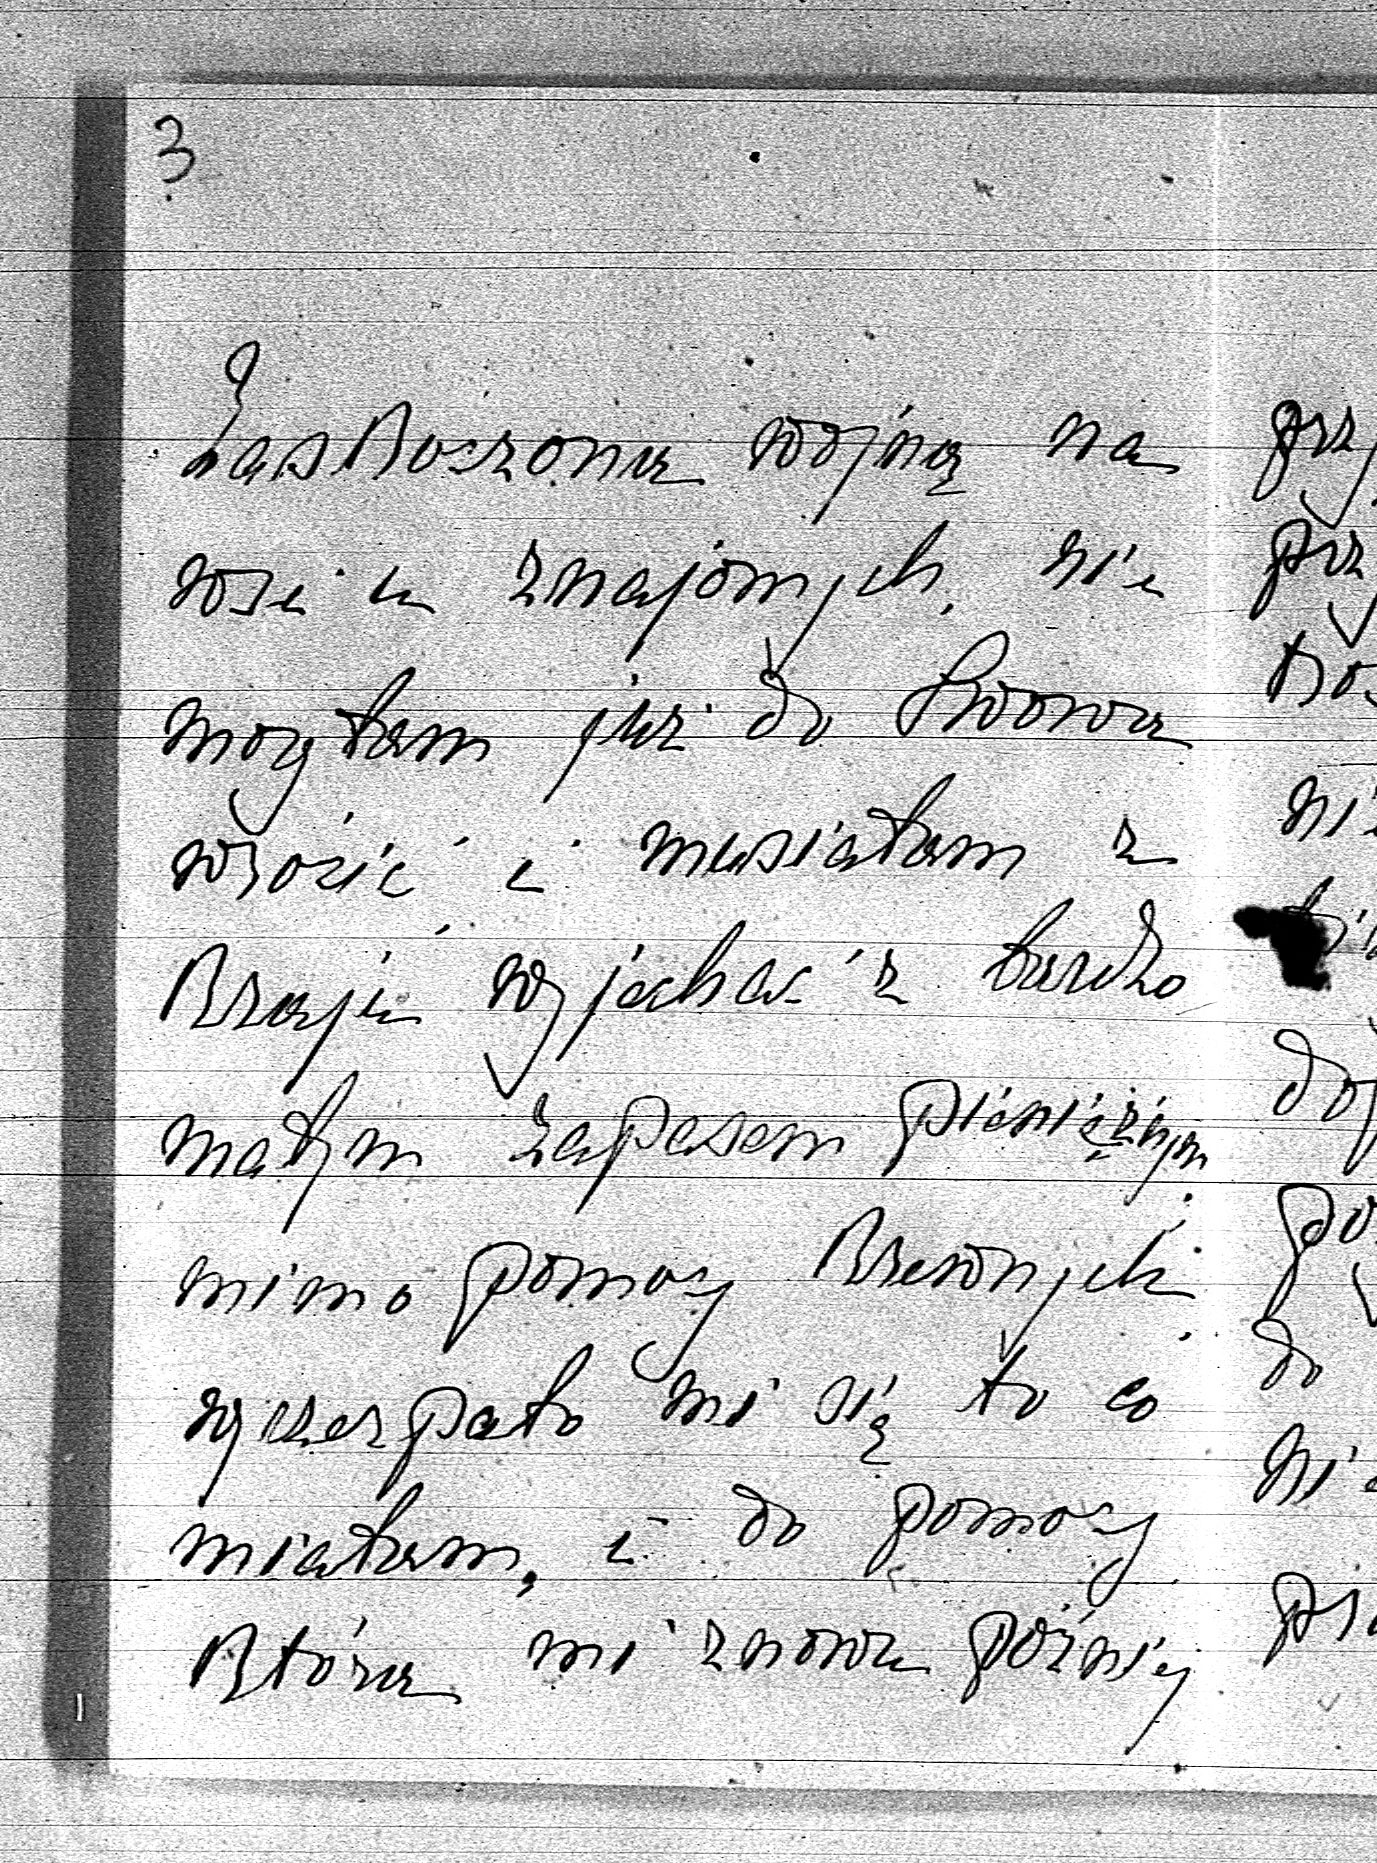 3
Zaskoczona wojną na
wsi u znajomych, nie
mogłam już do Lwowa
wrócić i musiałam z
kraju wyjechać z bardzo
małym zapasem pieniężnym
mimo pomocy krewnych
wyczerpało mi się to co
miałam, i do pomocy
która mi znowu później